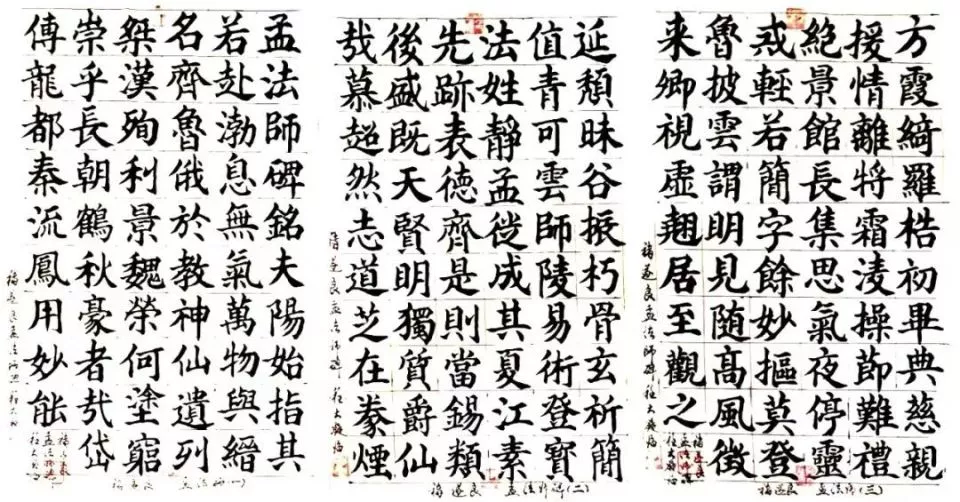 孟法師碑銘夫陽始指其
若赴渤息無氣萬物與縉
名齊魯俄於教神仙遺列
桀漢殉利景魏榮何塗窮
崇乎長朝鶴秋豪者㢤岱
傳龍都秦流鳳用妙能
褚遂良孟法師碑(一)
延頹昧谷振朽骨玄祈簡
值青可雲師陵易術登寶
法姓靜孟從成其夏江素
先跡表德齊是則當錫類
後盛既天賢明獨質爵仙
哉慕超然志道芝在豢煙
褚遂良孟法師碑(二)
方霞綺羅梏初畢典慈親
援情離將霜淩操節難禮
絕景館長集思氣夜停靈
戒輕若簡字餘妙摳莫登
魯披雲謂明見随高風徵
来卿視虛翹居至觀之
褚遂良孟法師碑(三)